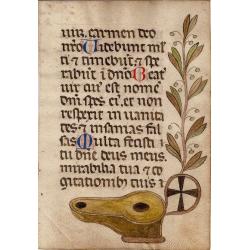 carmen deo
nr̄o Uidebunt ml
ti ⁊ timebūt ⁊ spe
rabūt ī dn̄o Beat
uir cuiꝰ est nomē
dn̄i spes eiꝰ et non
respexit in uanita
tes ⁊ insanias fal
sas Multa fecisti
tu dn̄e deus meus
mirabilia tua ⁊ co
gitationibꝫ tuis